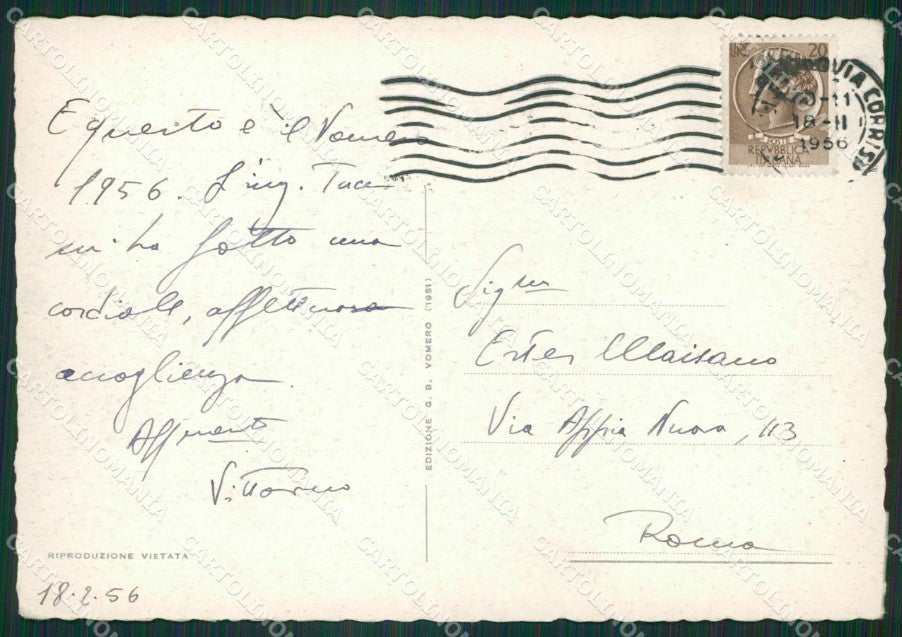 E questo è il Vomero
1956. L'ing. Tucci
mi ha fatto una
cordiale, affettuosa
accoglienza.
Affmente
Vittorino
RIPRODUZIONE VIETATA
18.2.56
EDIZIONE G. B. VOMERO (1951)
LIRE 20
REPVBBLICA
ITALIANA
FERROVIA CORRISP
18-II
1956
Sig.ra
Ester Maisano
Via Appia Nuova, 113
Roma
CARTOLINOMANIA